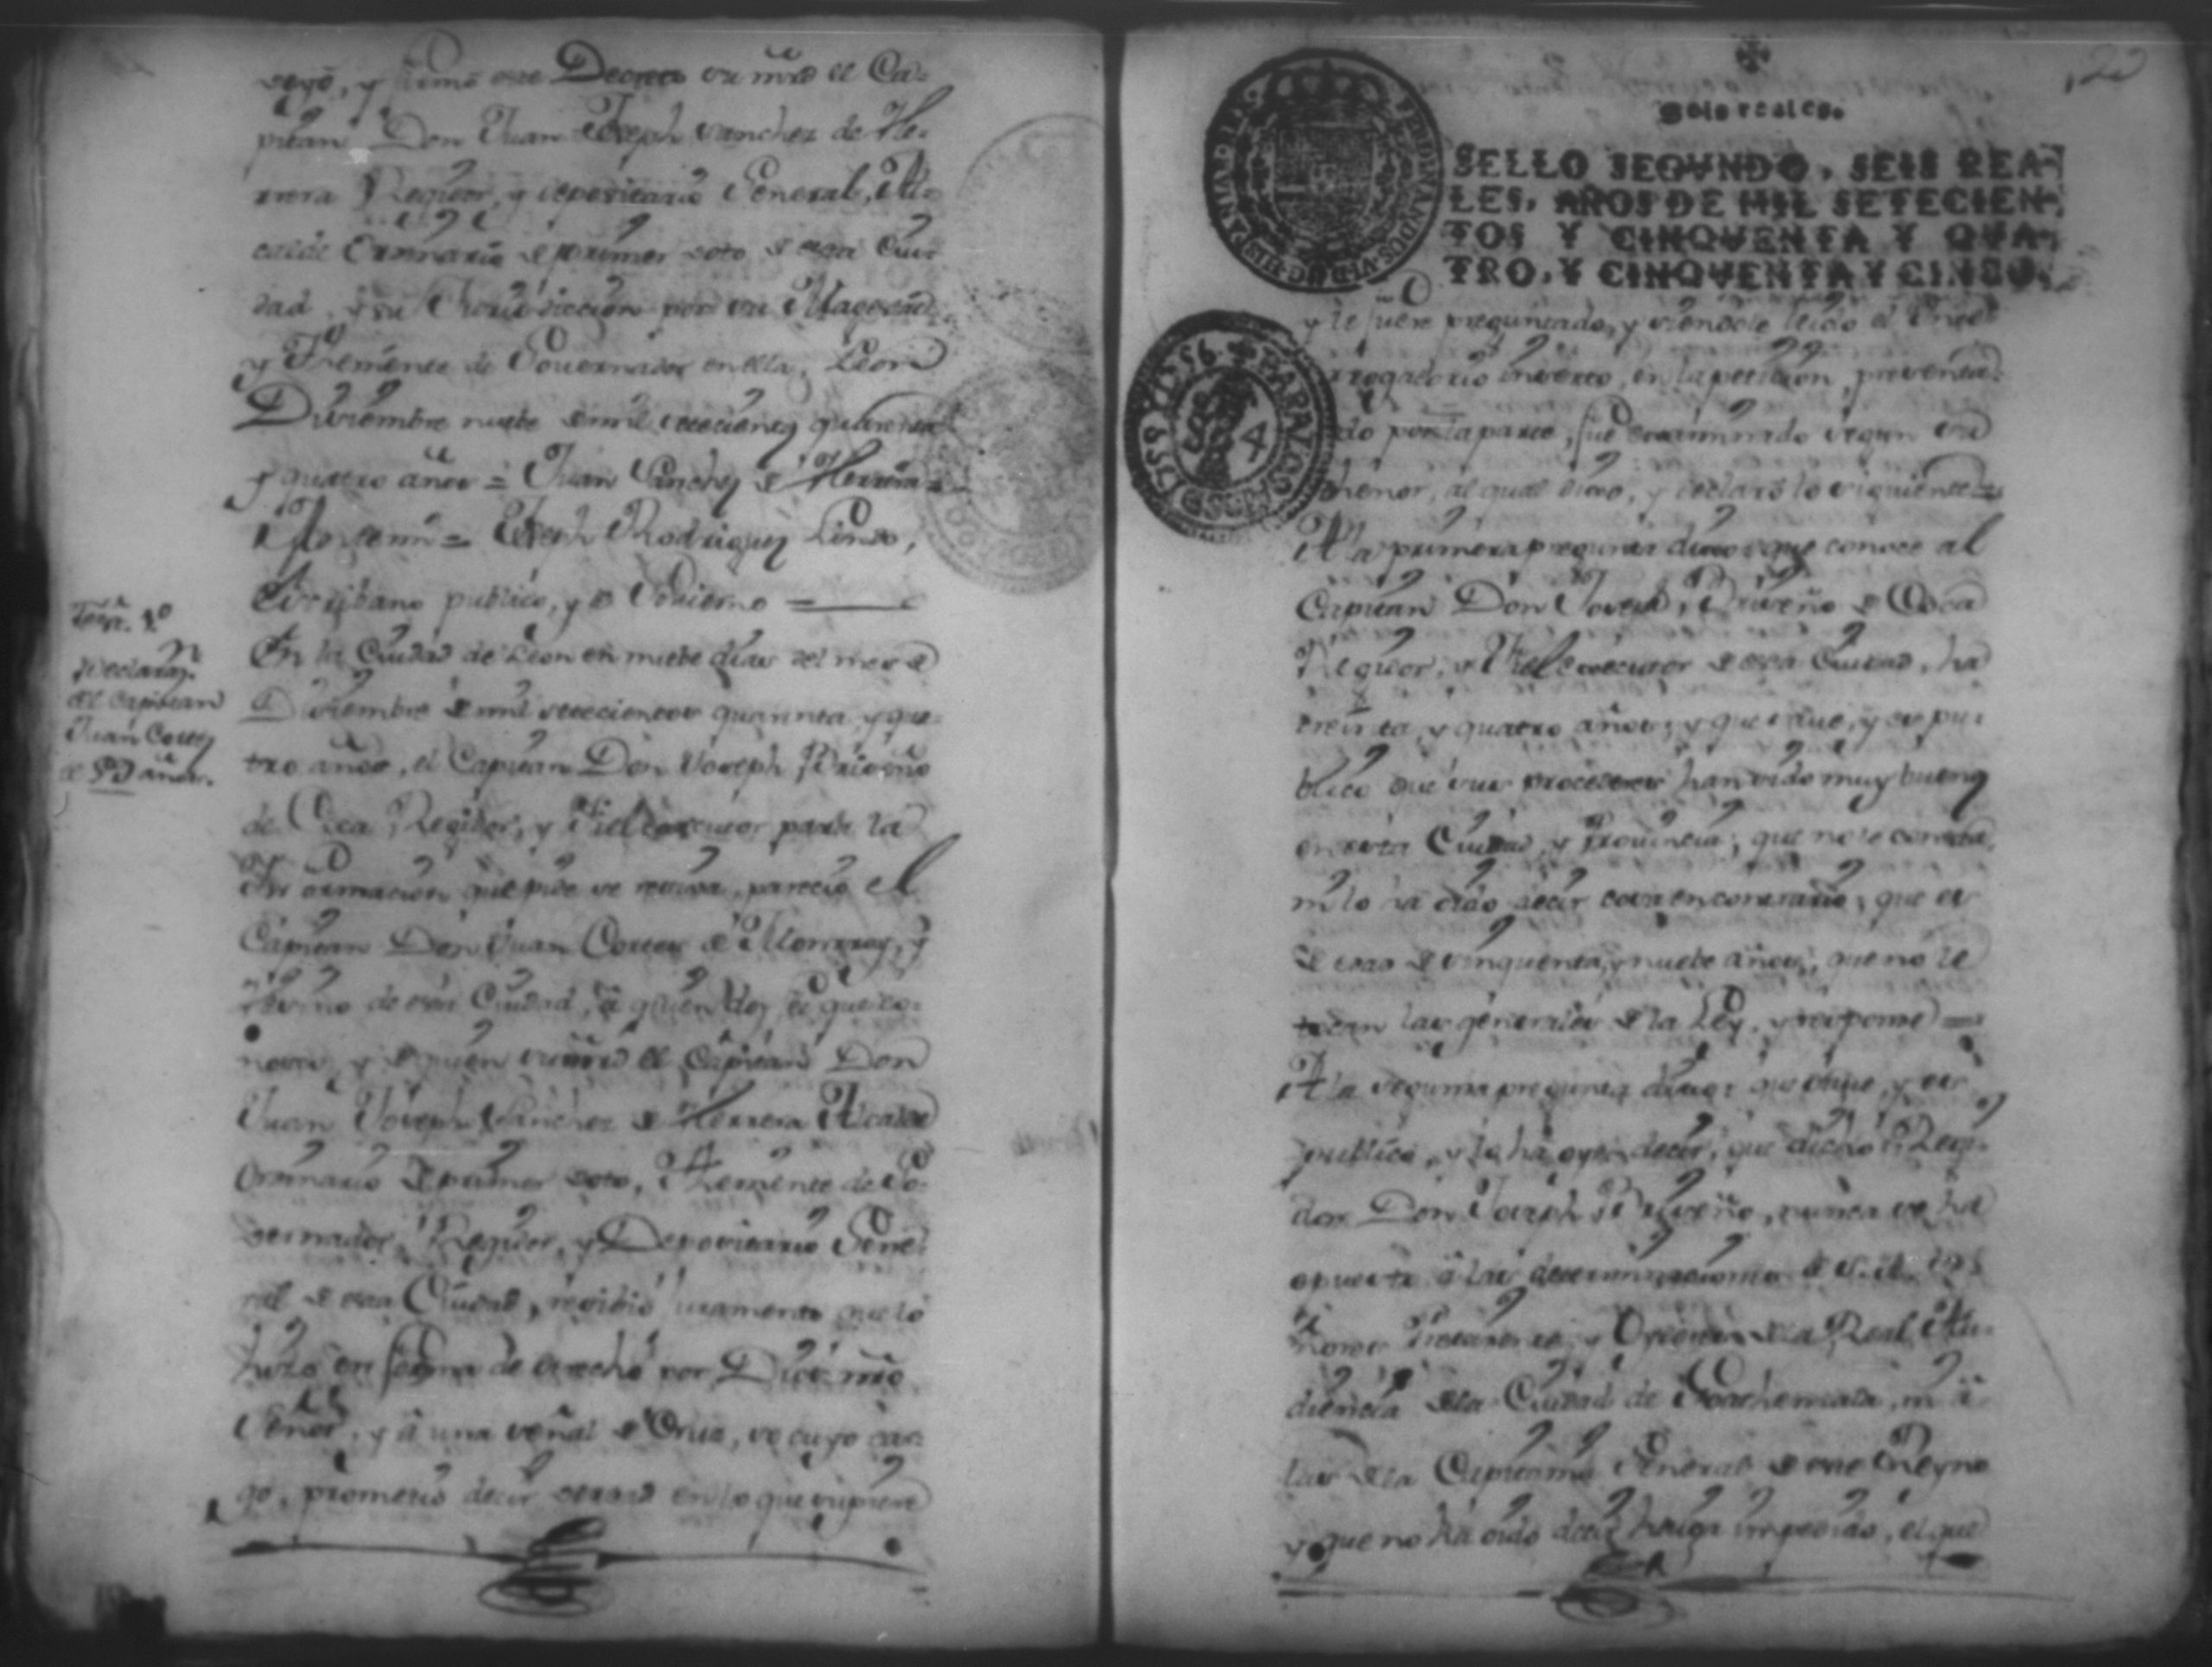 veyó, y firmó este Decreto su mrd el Ca-
pitan Don Juan Joseph Sanchez de He-
rrera Regidor, y depositario General, Al-
calde Ordinario de primer voto de esta Ciu-
dad, y su Jurisdiccion por su Magestad
y Theniente de Governador en ella. Leon
Diziembre nuebe de mil setecientos quarenta
y quatro años = Juan Sanchez de Herrera =
Antemi = Joseph Rodriguez
Escribano publico, y de Govierno =
En la Ciudad de Leon en nuebe dias del mes de
Diziembre de mil setecientos quarenta y qua-
tro años, el Capitan Don Joseph Briseño
de Coca Regidor, y Fiel executor para la
Informacion que pide se reciva, parecio el
Capitan Don Juan Cortes de Monrroy, y
vezino de esta Ciudad, á quien doy fé que co-
nosco, y de quien su mrd el Capitan Don
Juan Joseph Sanchez de Herrera Alcalde
Ordinario de primer voto, Theniente de Go-
vernador, Regidor, y Depositario Gene-
ral de esta Ciudad, recibió juramento que lo
hizo en forma de derecho por Dios nro
Señor, y á una señal de Cruz, so cuyo car-
go, prometio decir verdad en lo que supiere
Test. 1º
Declaraz.n
del Capitan
Juan Cortes
de 59 años.
Seis reales.
SELLO SEGVNDO, SEIS REA-
LES, AÑOS DE MIL SETECIEN-
TOS Y CINQVENTA Y QVA-
TRO, Y CINQVENTA Y CINCO.
y le fuere preguntado, y siendole leido el Inte-
rrogatorio inserto, en la peticion, presenta-
do por la parte, fue examinado segun su
thenor, al qual dixo, y declaró lo siguiente =
A la primera pregunta dixo: que conoce al
Capitan Don Joseph Briseño de Coca
Regidor, y Fiel executor de esta Ciudad, ha
treinta, y quatro años, y que save, y es pu-
blico que sus procederes han sido muy buenos
en esta Ciudad, y Provincia, que no le consta,
ni lo ha oido decir cosa en contrario, que es
de edad de cinquenta, y nuebe años, que no le
tocan las generales de la Ley, y responde =
A la segunda pregunta dixo: que save, y es
publico, y lo ha oydo decir, que dicho Regi-
dor Don Joseph Briseño, nunca se ha
opuesto á las determinaciones de
y Ordenes de la Real Au-
diencia de la Ciudad de Goathemala, ni á
las de la Capitania General de este Reyno
y que no ha oido decir haiga impedido, el que